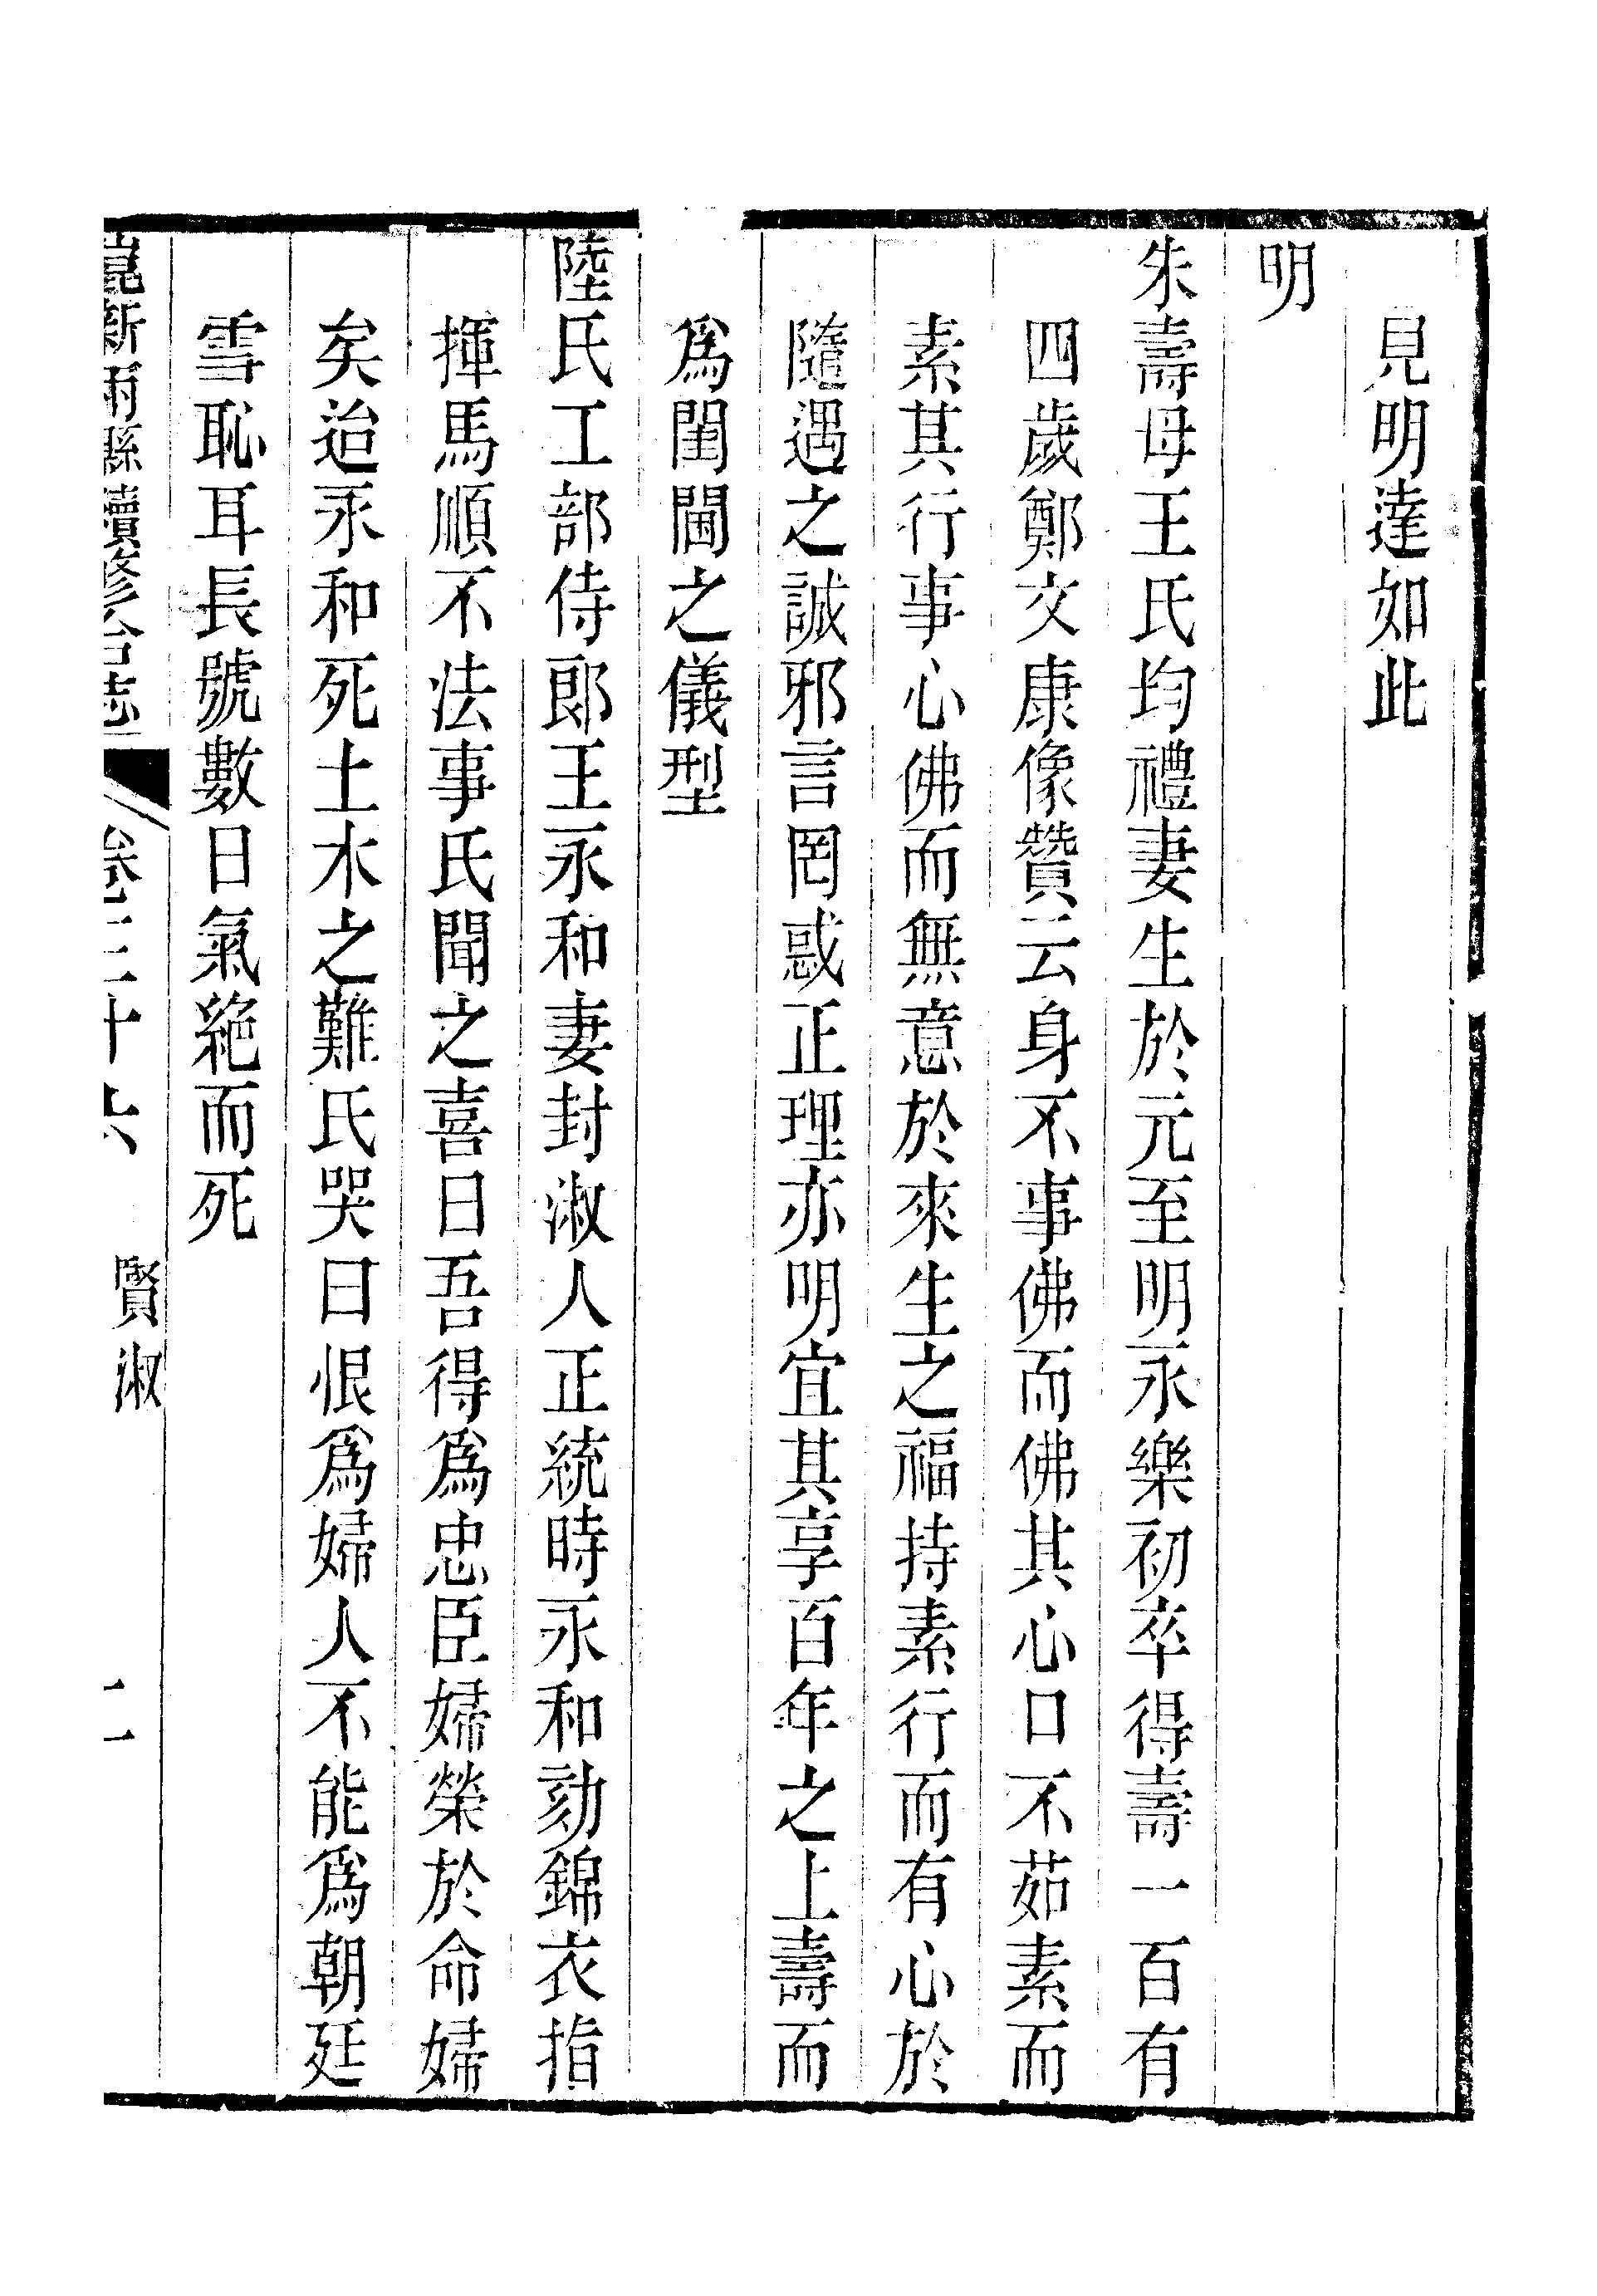 見明達如此
明
朱壽母王氏均禮妻生於元至明永樂初卒得壽一百有
四歲鄭文康像贊云身不事佛而佛其心口不茹素而
素其行事心佛而無意於來生之福持素行而有心於
隨遇之誠邪言罔惑正理亦明宜其享百年之上壽而
爲閨閫之儀型
陸氏工部侍郎王永和妻封淑人正統時永和劾錦衣指
揮馬順不法事氏聞之喜曰吾得爲忠臣婦榮於命婦
矣迨永和死土木之難氏哭曰恨爲婦人不能爲朝廷
雪恥耳長號數日氣絕而死
崑新兩縣續修合志 卷三十六 賢淑 二